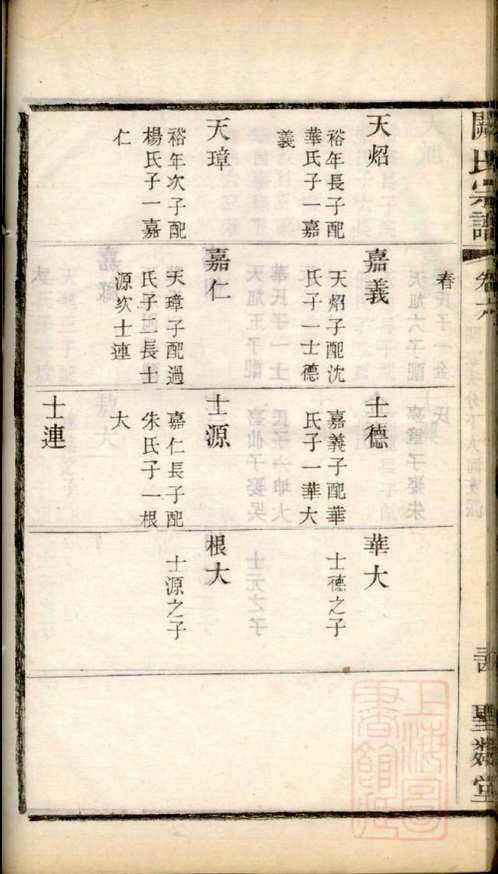 氏宗譜
卷六
聖裔堂
天炤
裕年長子配
華氏子一嘉
義
天璋
裕年次子配
楊氏子一嘉
仁
春
嘉義
天炤子配沈
氏子一士德
嘉仁
天璋子配過
氏子二長士
源次士連
士德
嘉義子配華
氏子一華大
士源
嘉仁長子配
朱氏子一根
大
士連
華大
士德之子
根大
士源之子
上海圖
書館藏